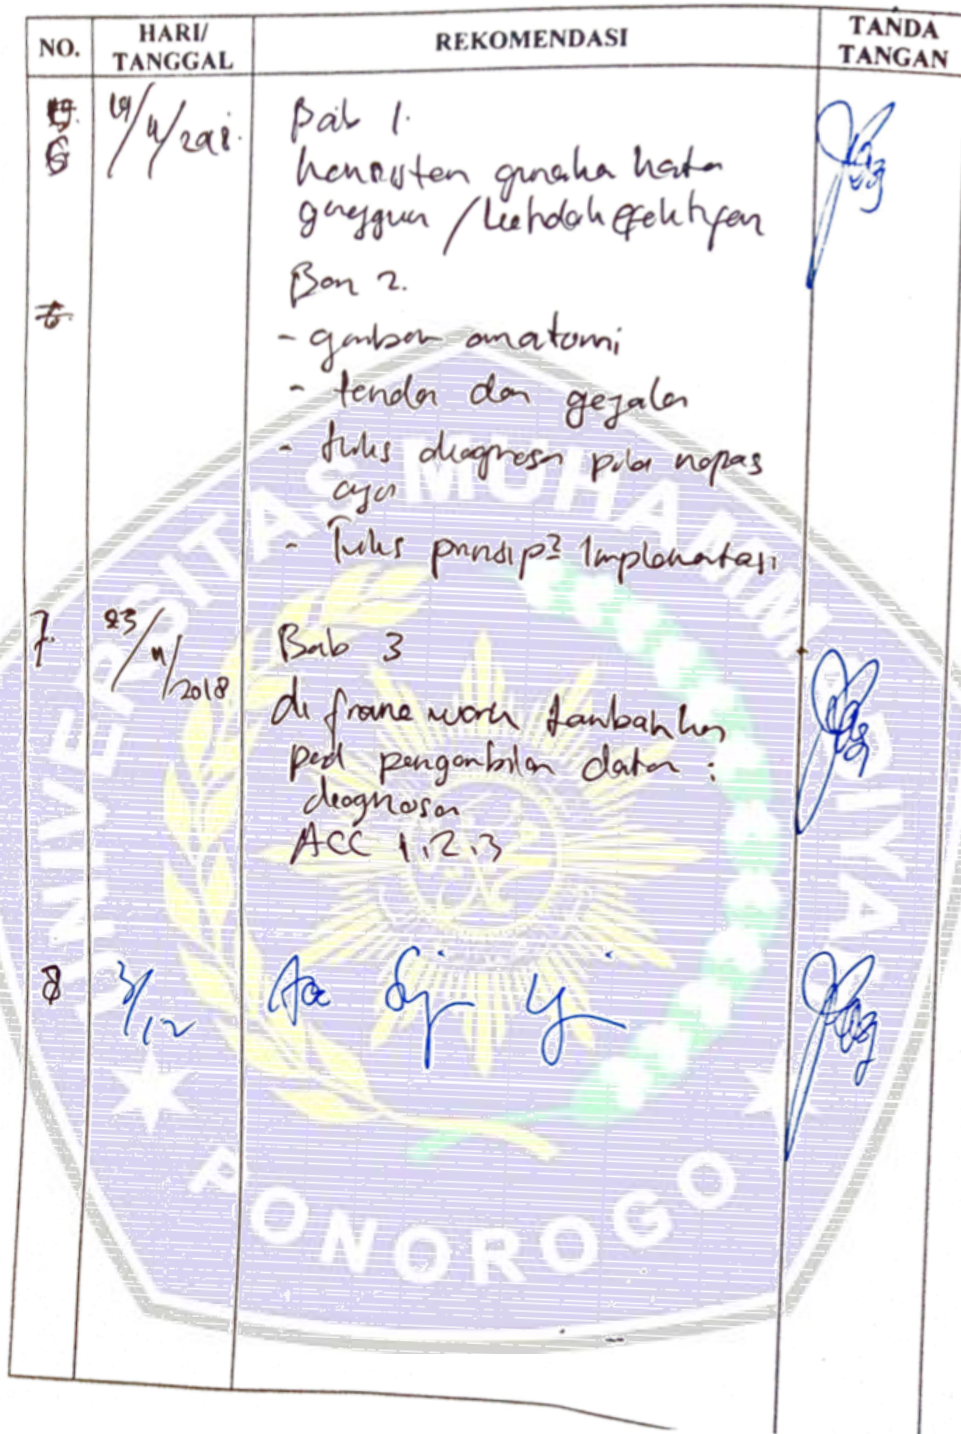 NO. HARI/ TANGGAL REKOMENDASI TANDA TANGAN
6 19/4/2018. Bab 1.
konsisten gunaka kata
gangguan / ketidakefektifan
Bab 2.
- gambar anatomi
- tanda dan gejala
- tulis diagnosa pola napas
aja
- Tulis prinsip2 Implementasi
7. 23/4/2018 Bab 3
di frame work tambahkan
pad pengambilan data :
diagnosa
ACC 1.2.3
8 3/12 Acc
UNIVERSITAS MUHAMMADIYAH
PONOROGO